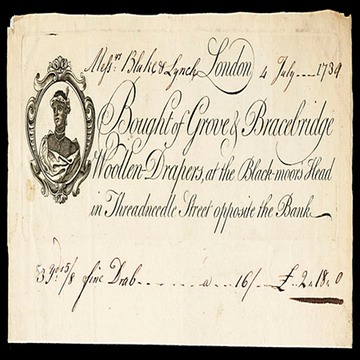 Mess.rs Blake & Lynch London 4 July --- 1784
Bought of Grove & Bracebridge
Woollen-Drapers, at the Black-moor's Head
in Threadneedle Street opposite the Bank
3 y.ds 5/8 fine Drab - - - - a - - 16/ - £ 2 .. 18 .. 0